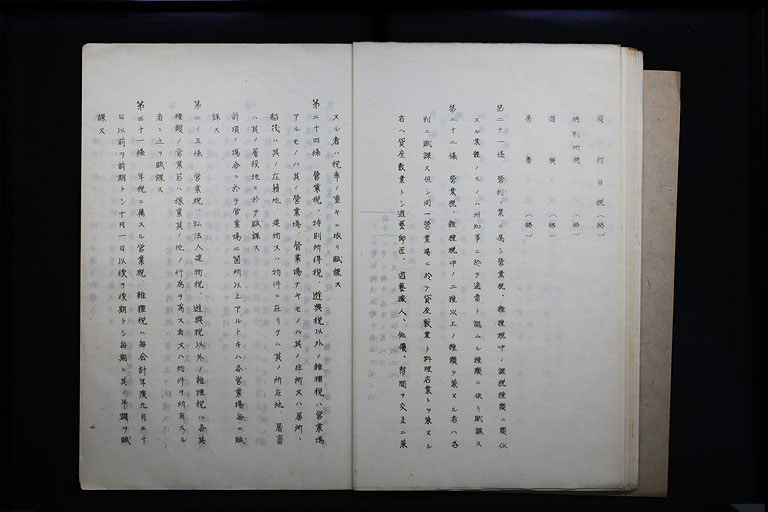 段別日税(略)
特別所得(略)
遊興税(略)
第二十一條 営利ノ業ニ属シ営業税、雑種税中ノ課税種類ニ類似
スル業態ノモノハ州知事ニ於テ適当ト認ムル種類ニ依リ賦課ス
第二十二條 営業税、雑種税中ノ二種以上ノ種類ヲ兼ヌル者ハ各
別ニ賦課ス但シ同一営業場ニ於テ貸座敷業ト料理店業トヲ兼ヌル
者ハ貸座敷業トシ遊藝師匠、遊藝職人、俳優、幇間ヲ交互ニ兼
スル者ハ税率ノ重キニ従リ賦課ス
第二十四條 営業税、特別所得税、遊興税以外ノ雑種税ハ営業場
アルモノハ其ノ営業場、営業場ナキモノハ其ノ住所又ハ居所、
船後ハ其ノ在籍地、建物又ハ物件ニ在リテハ其ノ所在地、屠畜
ハ其ノ屠殺地ニ於テ賦課ス
前項ノ場合ニ於テ営業場二箇所以上アルトキハ各営業場毎ニ賦
課ス
第二十五條 営業税、私法人建物税、遊興税以外ノ雑種税ハ各其
種類ノ営業若ハ稼業其ノ他ノ行為ヲ為ス者又ハ物件ヲ所有スル
者ニ之ヲ賦課ス
第三十一條 年税ニ属スル営業税、雑種税ハ毎会計年度九月三十
日以前ヲ前期トシ十月一日以後ヲ後期トシ毎期ニ其ノ半額ヲ賦
課ス